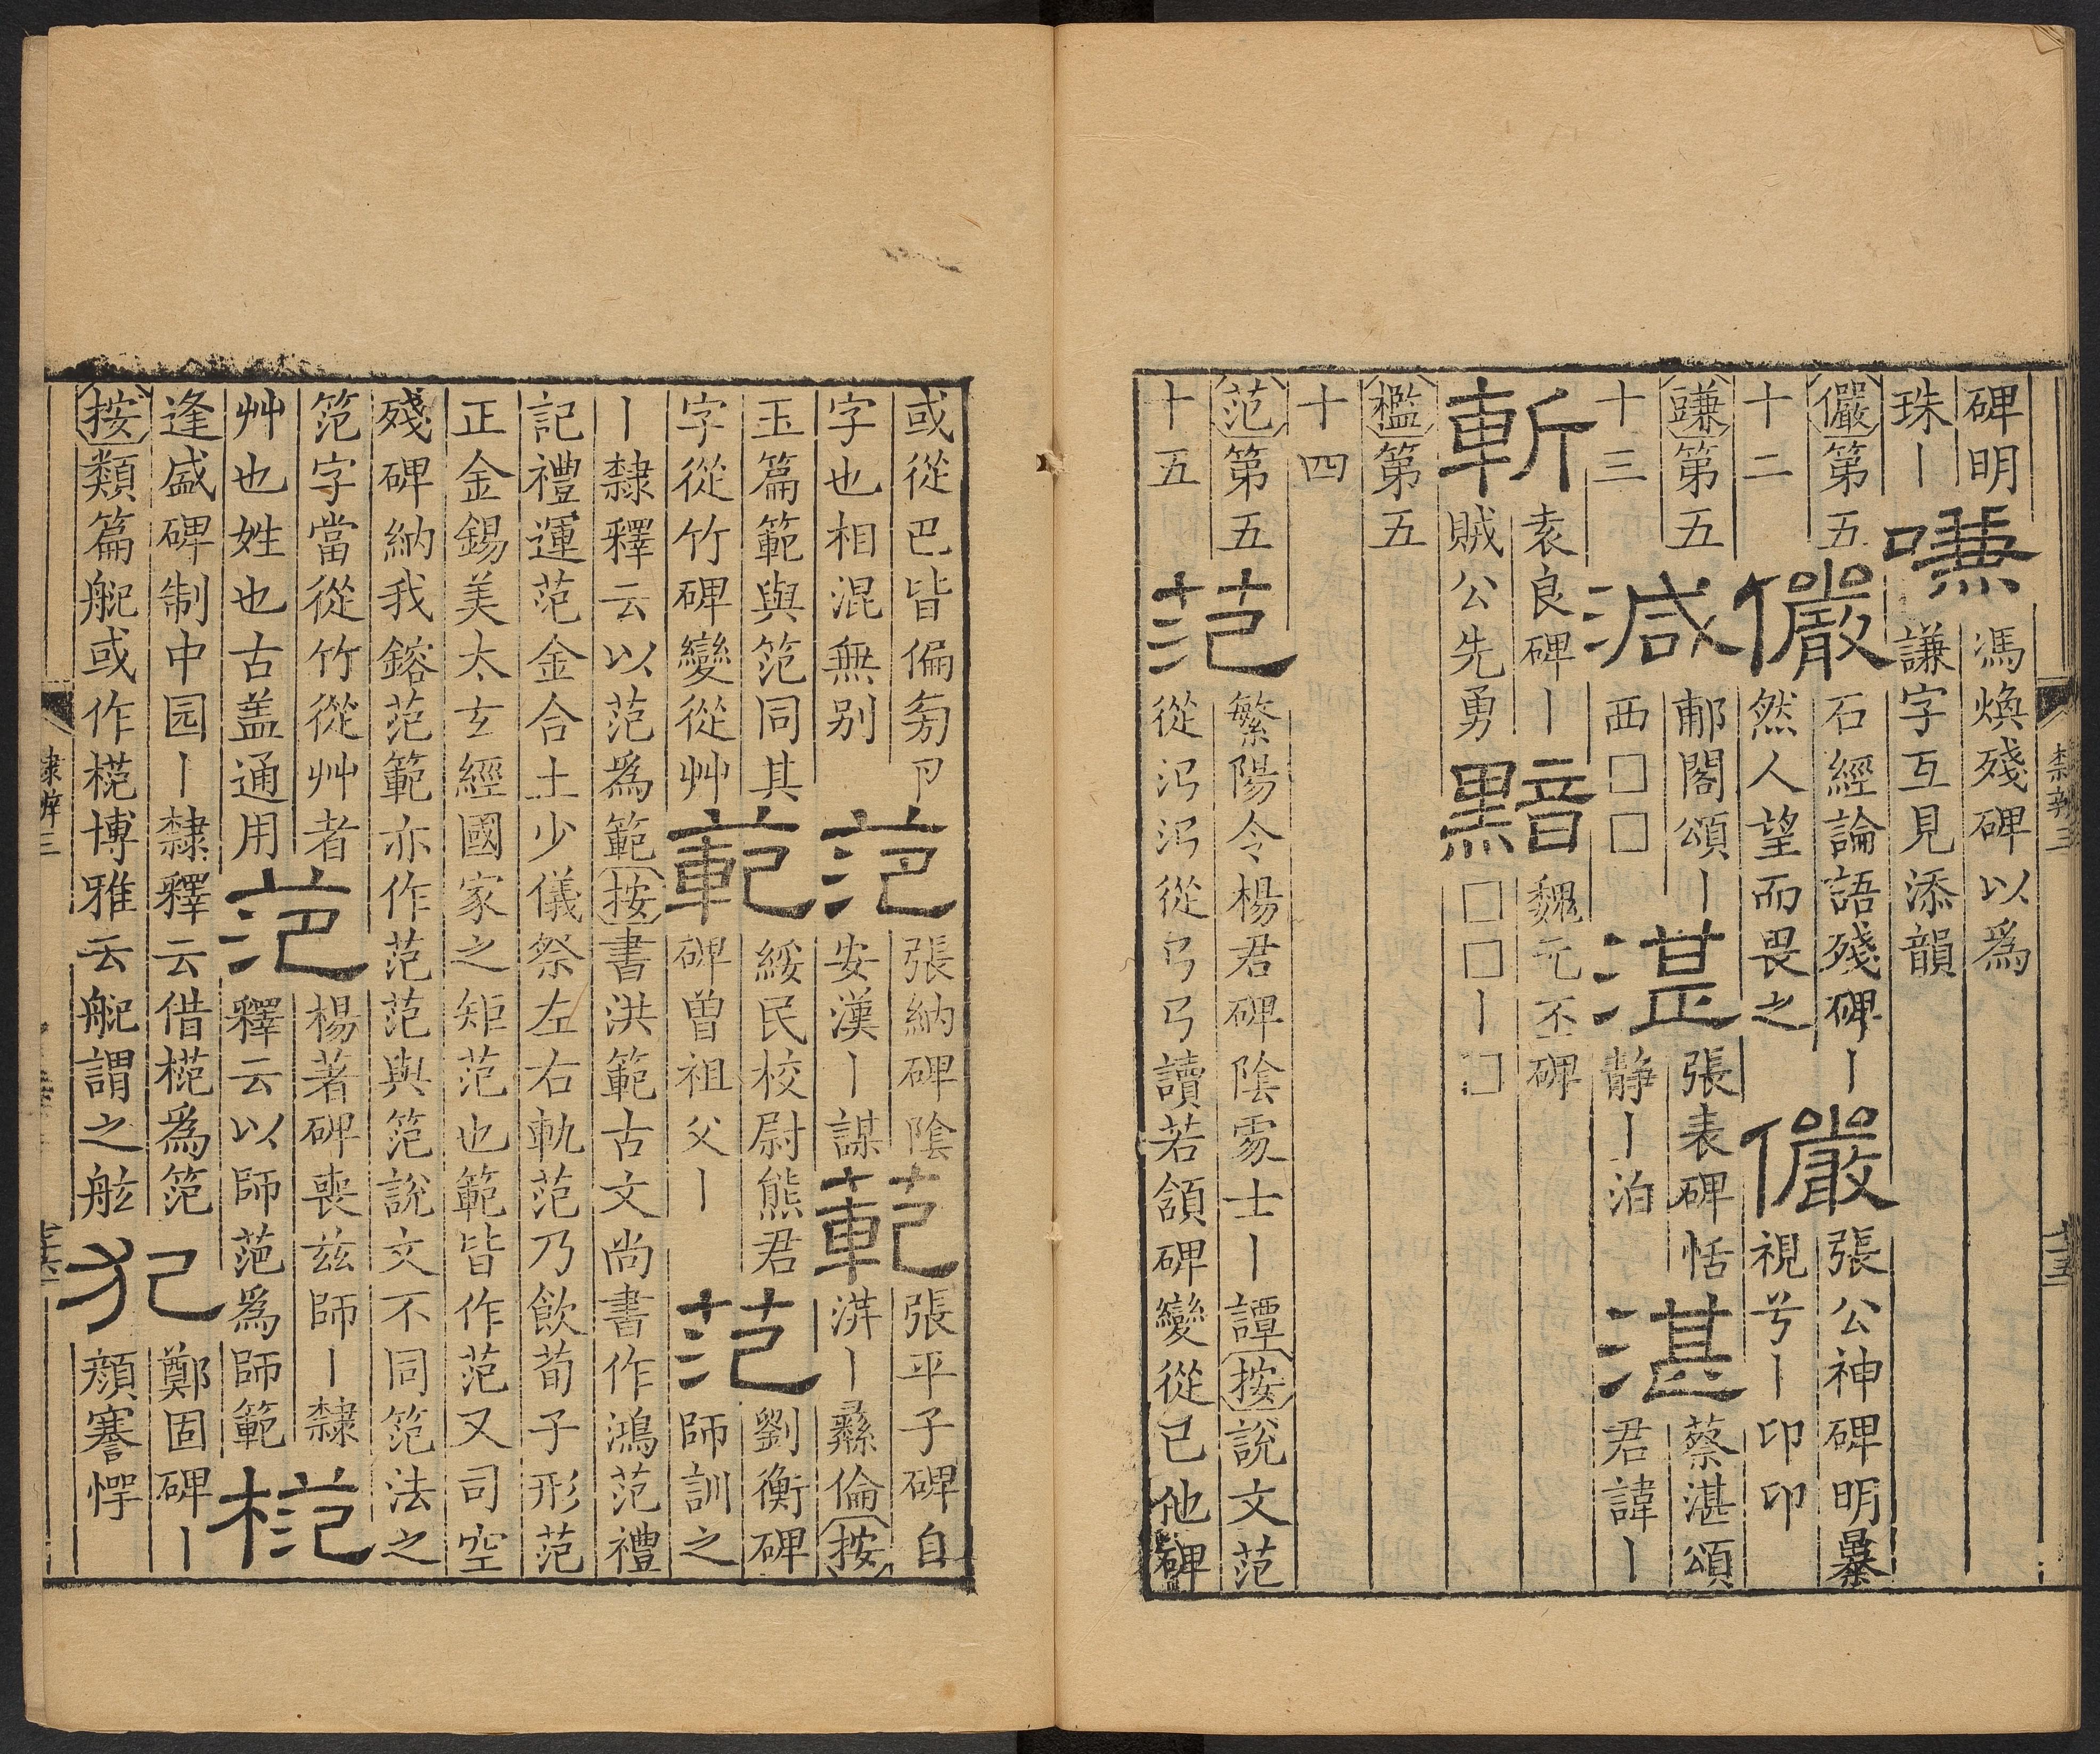 碑明
珠〡
嗛
馮煥殘碑以爲
謙字互見添韻
儼第五
十二
儼
石經論語殘碑〡
然人望而畏之
儼
張公神碑明暴
視兮〡卬卬
豏第五
十三
減
郙閣頌〡
西□□
湛
張表碑恬
静〡泊
湛
蔡湛頌
君諱〡
斬
袁良碑〡
賊公先勇
黯
魏元丕碑
□□〡□
檻第五
十四
范第五
十五
范
繁陽令楊君碑陰處士〡譚按說文范
從氾氾從弓弓讀若頷碑變從已他碑
或從巴皆偏旁卩
字也相混無别
范
張納碑陰
安漢〡謀
範
張平子碑自
洪〡彝倫按
玉篇範與笵同其
字從竹碑變從艸
範
綏民校尉熊君
碑曾祖父〡
范
劉衡碑
師訓之
〡隸釋云以范爲範按書洪範古文尚書作鴻范禮
記禮運范金合土少儀祭左右軌范乃飲荀子形范
正金錫美太玄經國家之矩范也範皆作范又司空
殘碑納我鎔范範亦作范范與笵說文不同笵法之
笵字當從竹從艸者
艸也姓也古盖通用
葩
楊著碑喪兹師〡隸
釋云以師葩爲師範
逢盛碑制中园〡隸釋云借爲笵
按類篇或作博雅云謂之舷
犯
鄭固碑〡
顔謇愕
隸辨三